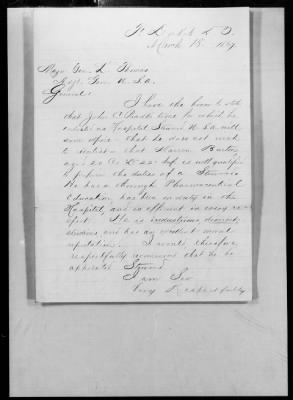 March 18, 1867.
Maj. Gen. L. Thomas
Adjt. Genl. U.S.A.
General:
I have the honor to state
that John C. time for which he
as Hospital Steward U.S.A. will
soon expire - that he does not wish
to reenlist - that
age 20 Co. D 22d Inf. is well qualified
to perform the duties of a Steward
He has a thorough Pharmaceutical
Education has been on duty in the
Hospital, and is efficient in every
He is industrious,
studious, and has an excellent moral
reputation. I would, therefore
respectfully recommend that he be
appointed Steward
I am Sir
Very Respectfully